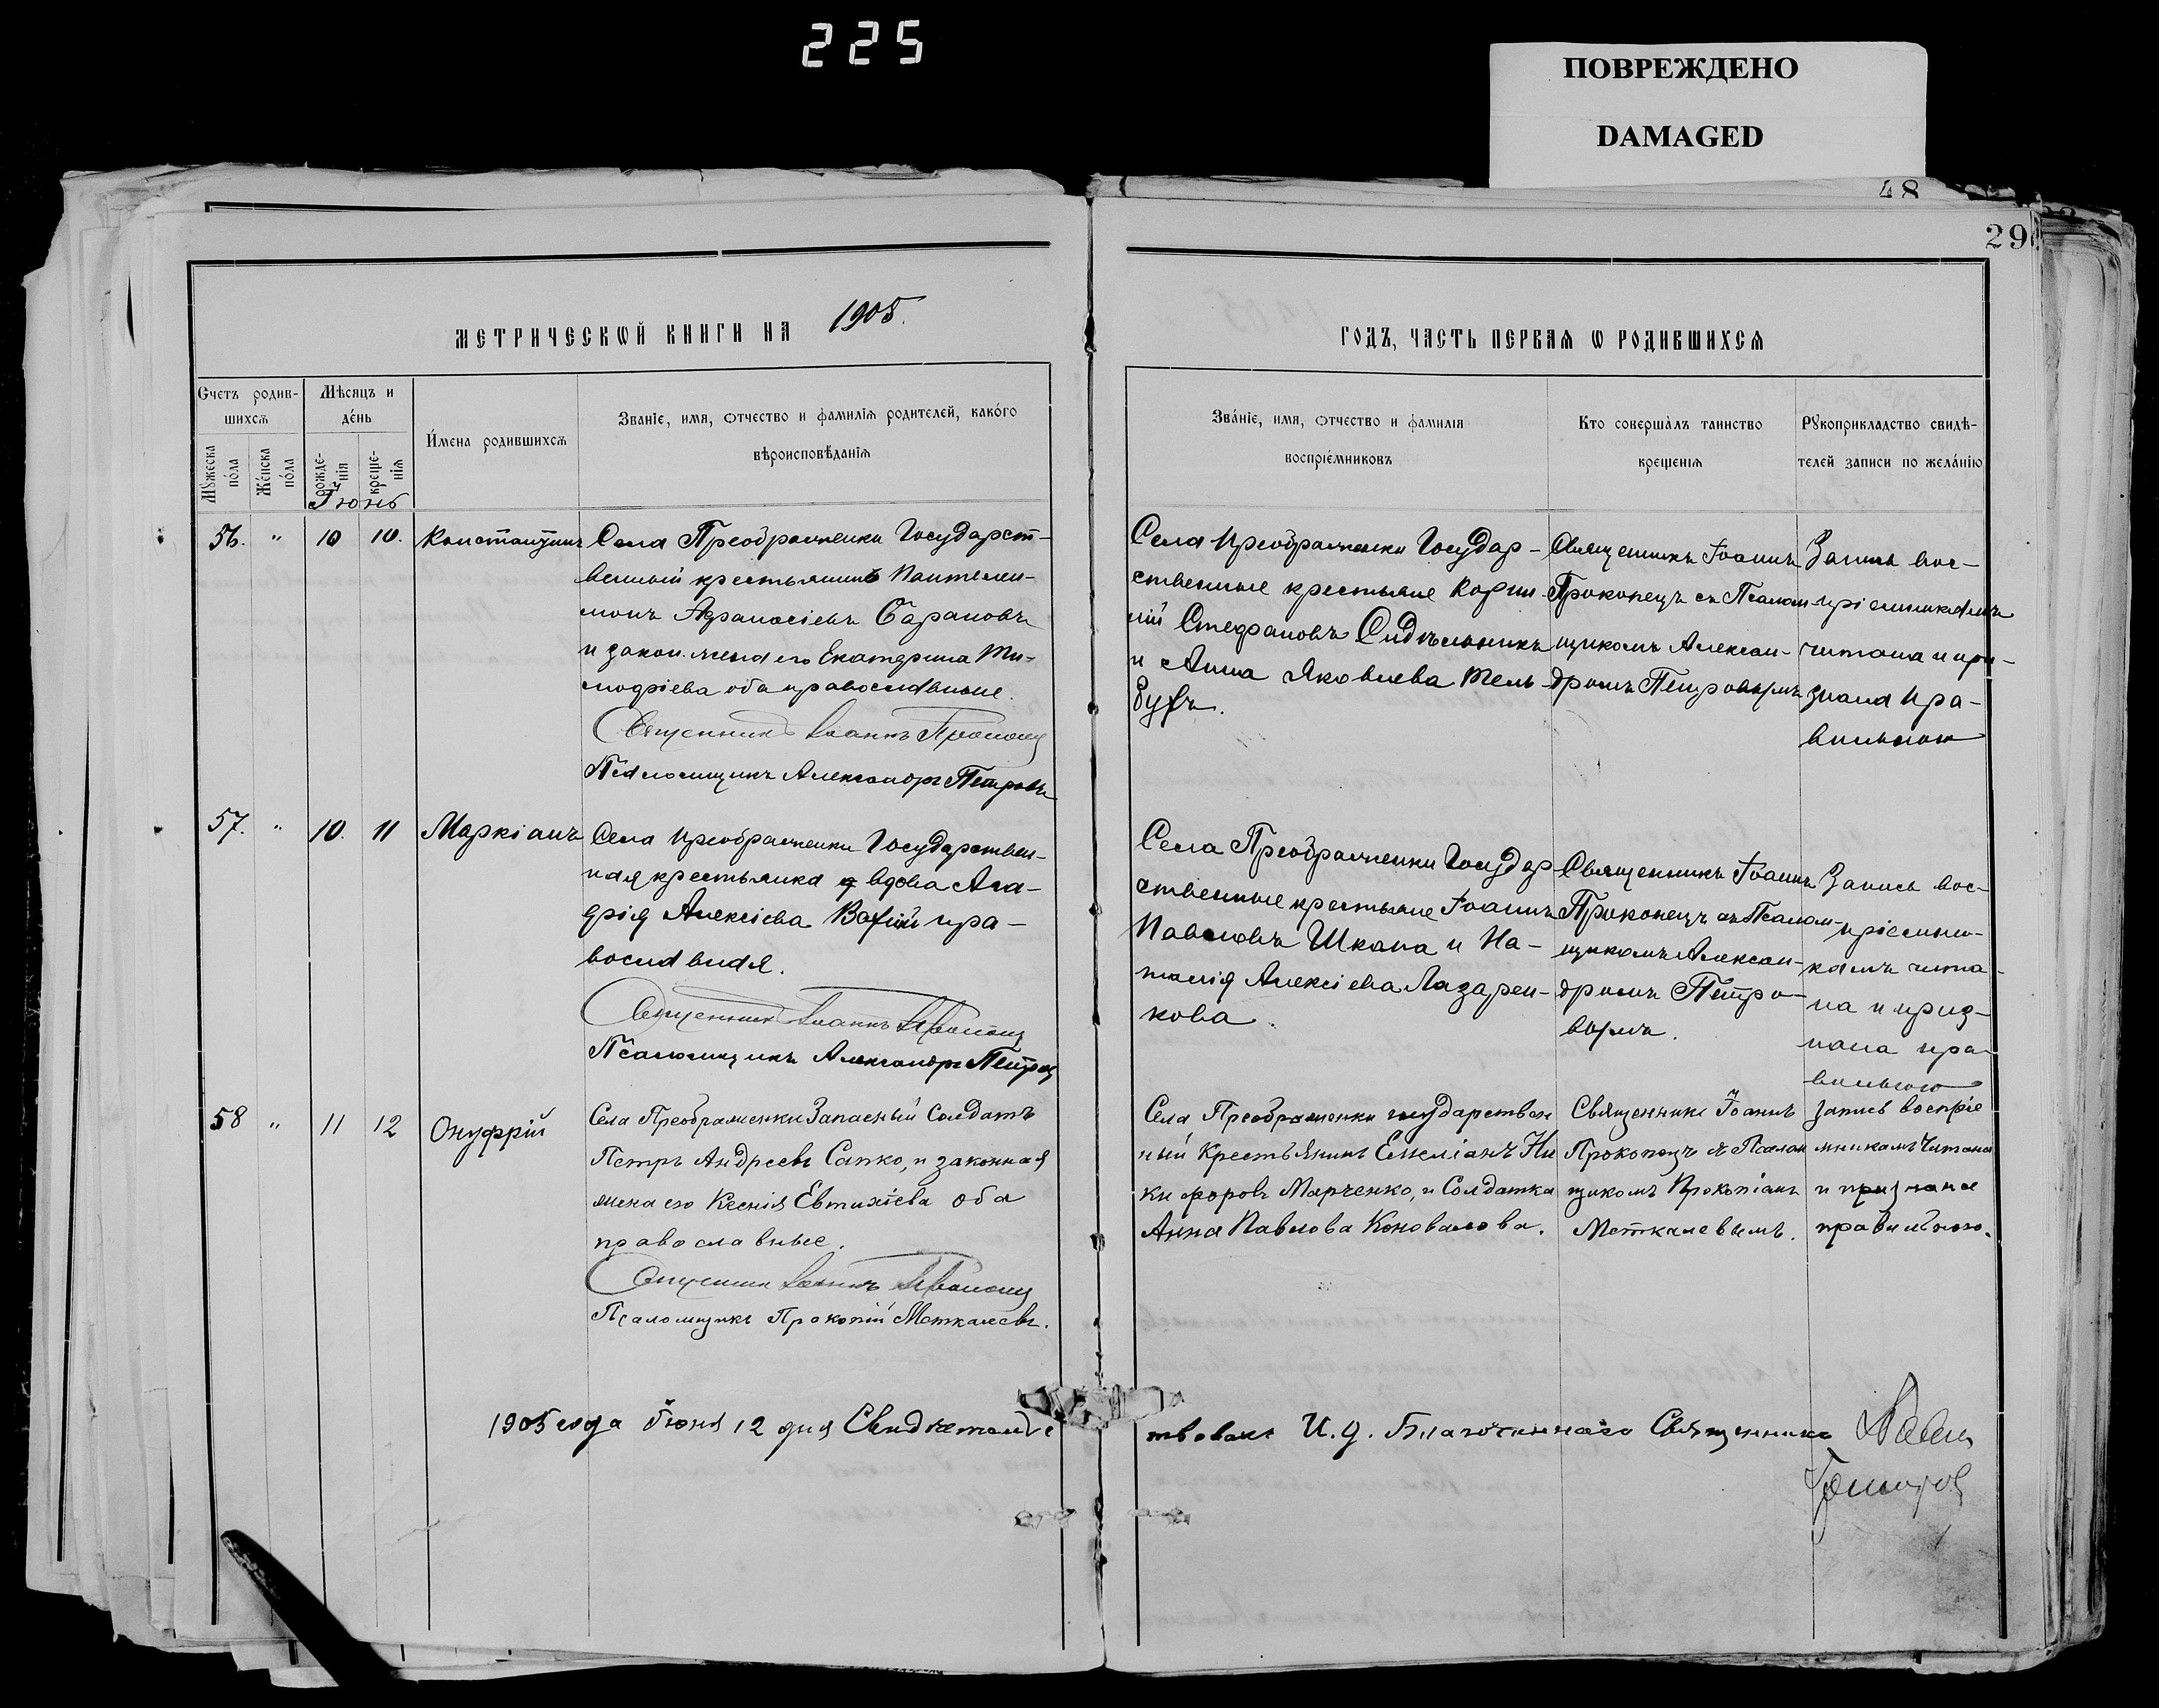 225
ПОВРЕЖДЕНО
DAMAGED
48
29
МЕТРИЧЕСКОЙ КНИГИ НА 1905.
ГОДЪ, ЧАСТЬ ПЕРВАЯ Ѡ РОДИВШИХСЯ
Счетъ родив-
шихся
Мужеска пола
Женска пола
Мѣсяцъ и
день
рожде-
нія
креще-
нія
Имена родившихся
Званіе, имя, отчество и фамилія родителей, какого
вѣроисповѣданія
Званіе, имя, отчество и фамилія
воспріемниковъ
Кто совершалъ таинство
крещенія
Рукоприкладство свидѣ-
телей записи по желанію
Іюнь
56. " 10 10. Константинъ
Села Преображенки Государст-
венный крестьянинъ Пантелей-
монъ Афанасіевъ Барановъ
и закон. жена его Екатерина Ти-
мофіева оба православные.
Священникъ Іоаннъ
Псаломщикъ Александръ Петровъ
Села Преображенки Государ-
ственные крестьяне Корни-
лій Стефановъ Сидѣльникъ
и Анна Яковлева Тель-
бухъ.
Священникъ Іоаннъ
Прокопецъ съ Псалом-
щикомъ Алексан-
дромъ Петровымъ
Запись вос-
пріемникамъ
читана и при-
знана пра-
вильною
57. " 10. 11 Маркіанъ
Села Преображенки Государствен-
ная крестьянка вдова Ага-
фія Алексіева Вахній пра-
вославная.
Священникъ Іоаннъ
Псаломщикъ Александръ Петровъ
Села Преображенки Государ
ственные крестьяне Іоаннъ
Павловъ Шкапа и На-
талія Алексіева Лазарен-
кова
Священникъ Іоаннъ
Прокопецъ съ Псалом-
щикомъ Алексан-
дромъ Петро-
вымъ.
Запись вос-
пріемни-
камъ чита-
на и приз-
нана пра-
вильною
58 " 11 12 Онуфрій
Села Преображенки Запасный Солдатъ
Петръ Андреевъ Сапко, и законная
жена его Ксенія Евтихіева оба
православные.
Священникъ Іоаннъ
Псаломщикъ Прокопій Меткалевъ.
Села Преображенки государствен
ный Крестьянинъ Емеліанъ Ни
кифоровъ Марченко, и Солдатка
Анна Павлова Коновалова.
Священникъ Іоаннъ
Прокопецъ съ Псалом
щикомъ Прокопіемъ
Меткалевымъ.
запись воспріе
мникамъ Читана
и признана
правильною.
1905 года Іюня 12 дня Свидѣтельс
твовалъ И. д. Благочиннаго Священникъ